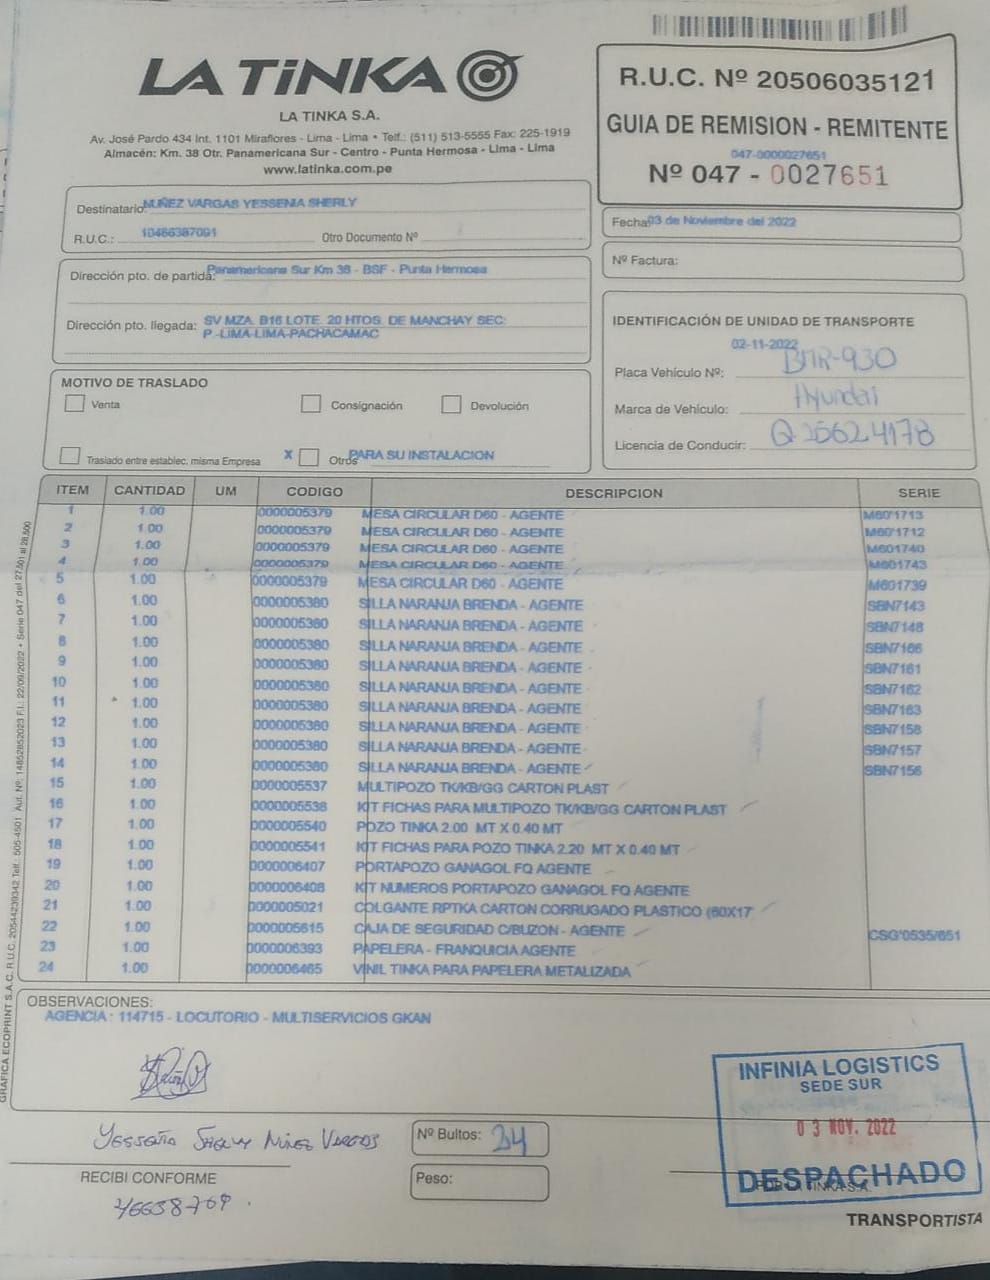 LA TiNKA
LA TINKA S.A.
Av. José Pardo 434 Int. 1101 Miraflores - Lima - Lima • Telf.: (511) 513-5555 Fax: 225-1919
Almacén: Km. 38 Otr. Panamericana Sur - Centro - Punta Hermosa - Lima - Lima
www.latinka.com.pe
R.U.C. Nº 20506035121
GUIA DE REMISION - REMITENTE
047-0000027651
Nº 047 - 0027651
Destinatario: NUÑEZ VARGAS YESSENIA SHERLY
R.U.C.: 10466387091 Otro Documento Nº
Fecha: 03 de Noviembre del 2022
Nº Factura:
Dirección pto. de partida: Panamericana Sur Km 38 - BSF - Punta Hermosa
Dirección pto. llegada: SV MZA. B16 LOTE. 20 HTOS. DE MANCHAY SEC:
P -LIMA-LIMA-PACHACAMAC
IDENTIFICACIÓN DE UNIDAD DE TRANSPORTE
02-11-2022
Placa Vehículo Nº: -930
Marca de Vehículo: Hyundai
Licencia de Conducir: Q25624178
MOTIVO DE TRASLADO
Venta Consignación Devolución
Traslado entre establec. misma Empresa X Otros PARA SU INSTALACION
ITEM CANTIDAD UM CODIGO DESCRIPCION SERIE
1 1.00 0000005379 MESA CIRCULAR D60 - AGENTE M60'1713
2 1.00 0000005379 MESA CIRCULAR D60 - AGENTE M60'1712
3 1.00 0000005379 MESA CIRCULAR D60 - AGENTE M601740
4 1.00 0000005379 MESA CIRCULAR D60 - AGENTE M601743
5 1.00 0000005379 MESA CIRCULAR D60 - AGENTE M601739
6 1.00 0000005380 SILLA NARANJA BRENDA - AGENTE SBN7143
7 1.00 0000005380 SILLA NARANJA BRENDA - AGENTE SBN7148
8 1.00 0000005380 SILLA NARANJA BRENDA - AGENTE SBN7166
9 1.00 0000005380 SILLA NARANJA BRENDA - AGENTE SBN7161
10 1.00 0000005380 SILLA NARANJA BRENDA - AGENTE SBN7162
11 1.00 0000005380 SILLA NARANJA BRENDA - AGENTE SBN7163
12 1.00 0000005380 SILLA NARANJA BRENDA - AGENTE SBN7158
13 1.00 0000005380 SILLA NARANJA BRENDA - AGENTE SBN7157
14 1.00 0000005380 SILLA NARANJA BRENDA - AGENTE SBN7156
15 1.00 0000005537 MULTIPOZO TK/KB/GG CARTON PLAST
16 1.00 0000005538 KIT FICHAS PARA MULTIPOZO TK/KB/GG CARTON PLAST
17 1.00 0000005540 POZO TINKA 2.00 MT X 0.40 MT
18 1.00 0000005541 KIT FICHAS PARA POZO TINKA 2.20 MT X 0.40 MT
19 1.00 0000006407 PORTAPOZO GANAGOL FQ AGENTE
20 1.00 0000006408 KIT NUMEROS PORTAPOZO GANAGOL FQ AGENTE
21 1.00 0000005021 COLGANTE RPTKA CARTON CORRUGADO PLASTICO (60X17
22 1.00 0000005615 CAJA DE SEGURIDAD C/BUZON - AGENTE CSG'0535/651
23 1.00 0000006393 PAPELERA - FRANQUICIA AGENTE
24 1.00 0000006465 VINIL TINKA PARA PAPELERA METALIZADA
GRAFICA ECOPRINT S.A.C. R.U.C. 20544239342 Telf.: 505-4501 Aut. Nº: 14852852023 F.I.: 22/09/2022 • Serie 047 del 27,501 al 28,500
OBSERVACIONES:
AGENCIA : 114715 - LOCUTORIO - MULTISERVICIOS GKAN
INFINIA LOGISTICS
SEDE SUR
03 NOV. 2022
DESPACHADO
POR LA TINKA S.A.
TRANSPORTISTA
Yessenia Sherly Nuñez Vargas
RECIBI CONFORME
46638709.
Nº Bultos: 24
Peso: